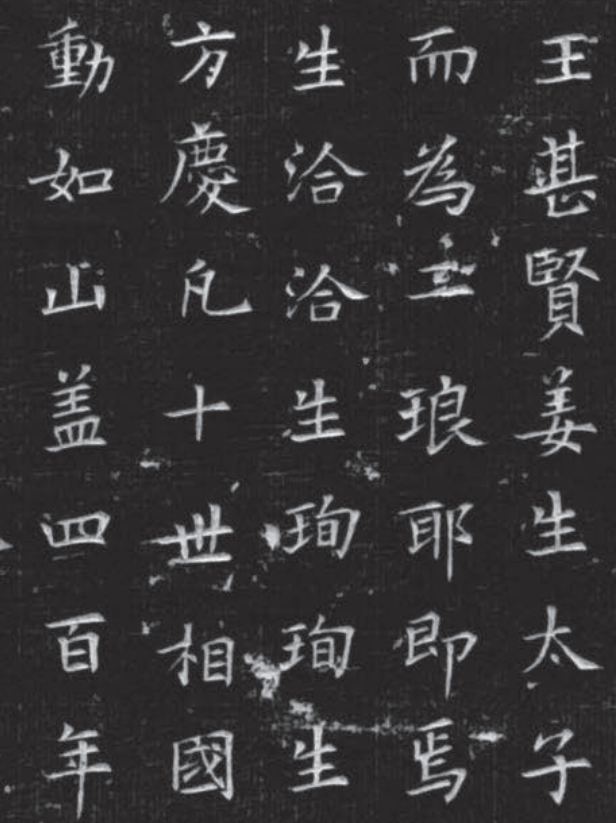 王甚賢姜生太子
而為王琅耶即焉
生洽洽生珣珣生
方慶凡十世相國
動如山盖四百年